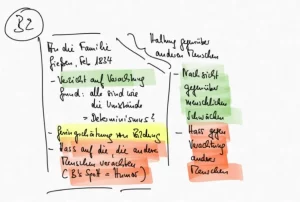 B2
An die Familie
Gießen, Feb 1834
- Verzicht auf Verachtung
Grund: alle sind wie
die Umstände
= Determinismus!
- Geringschätzung von Bildung
- Hass auf die, die andere
Menschen verachten
(B's Spott = Humor)
Haltung gegenüber
anderen Menschen
- Nachsicht
gegenüber
menschlichen
Schwächen
- Hass gegen
Verachtung
anderer
Menschen